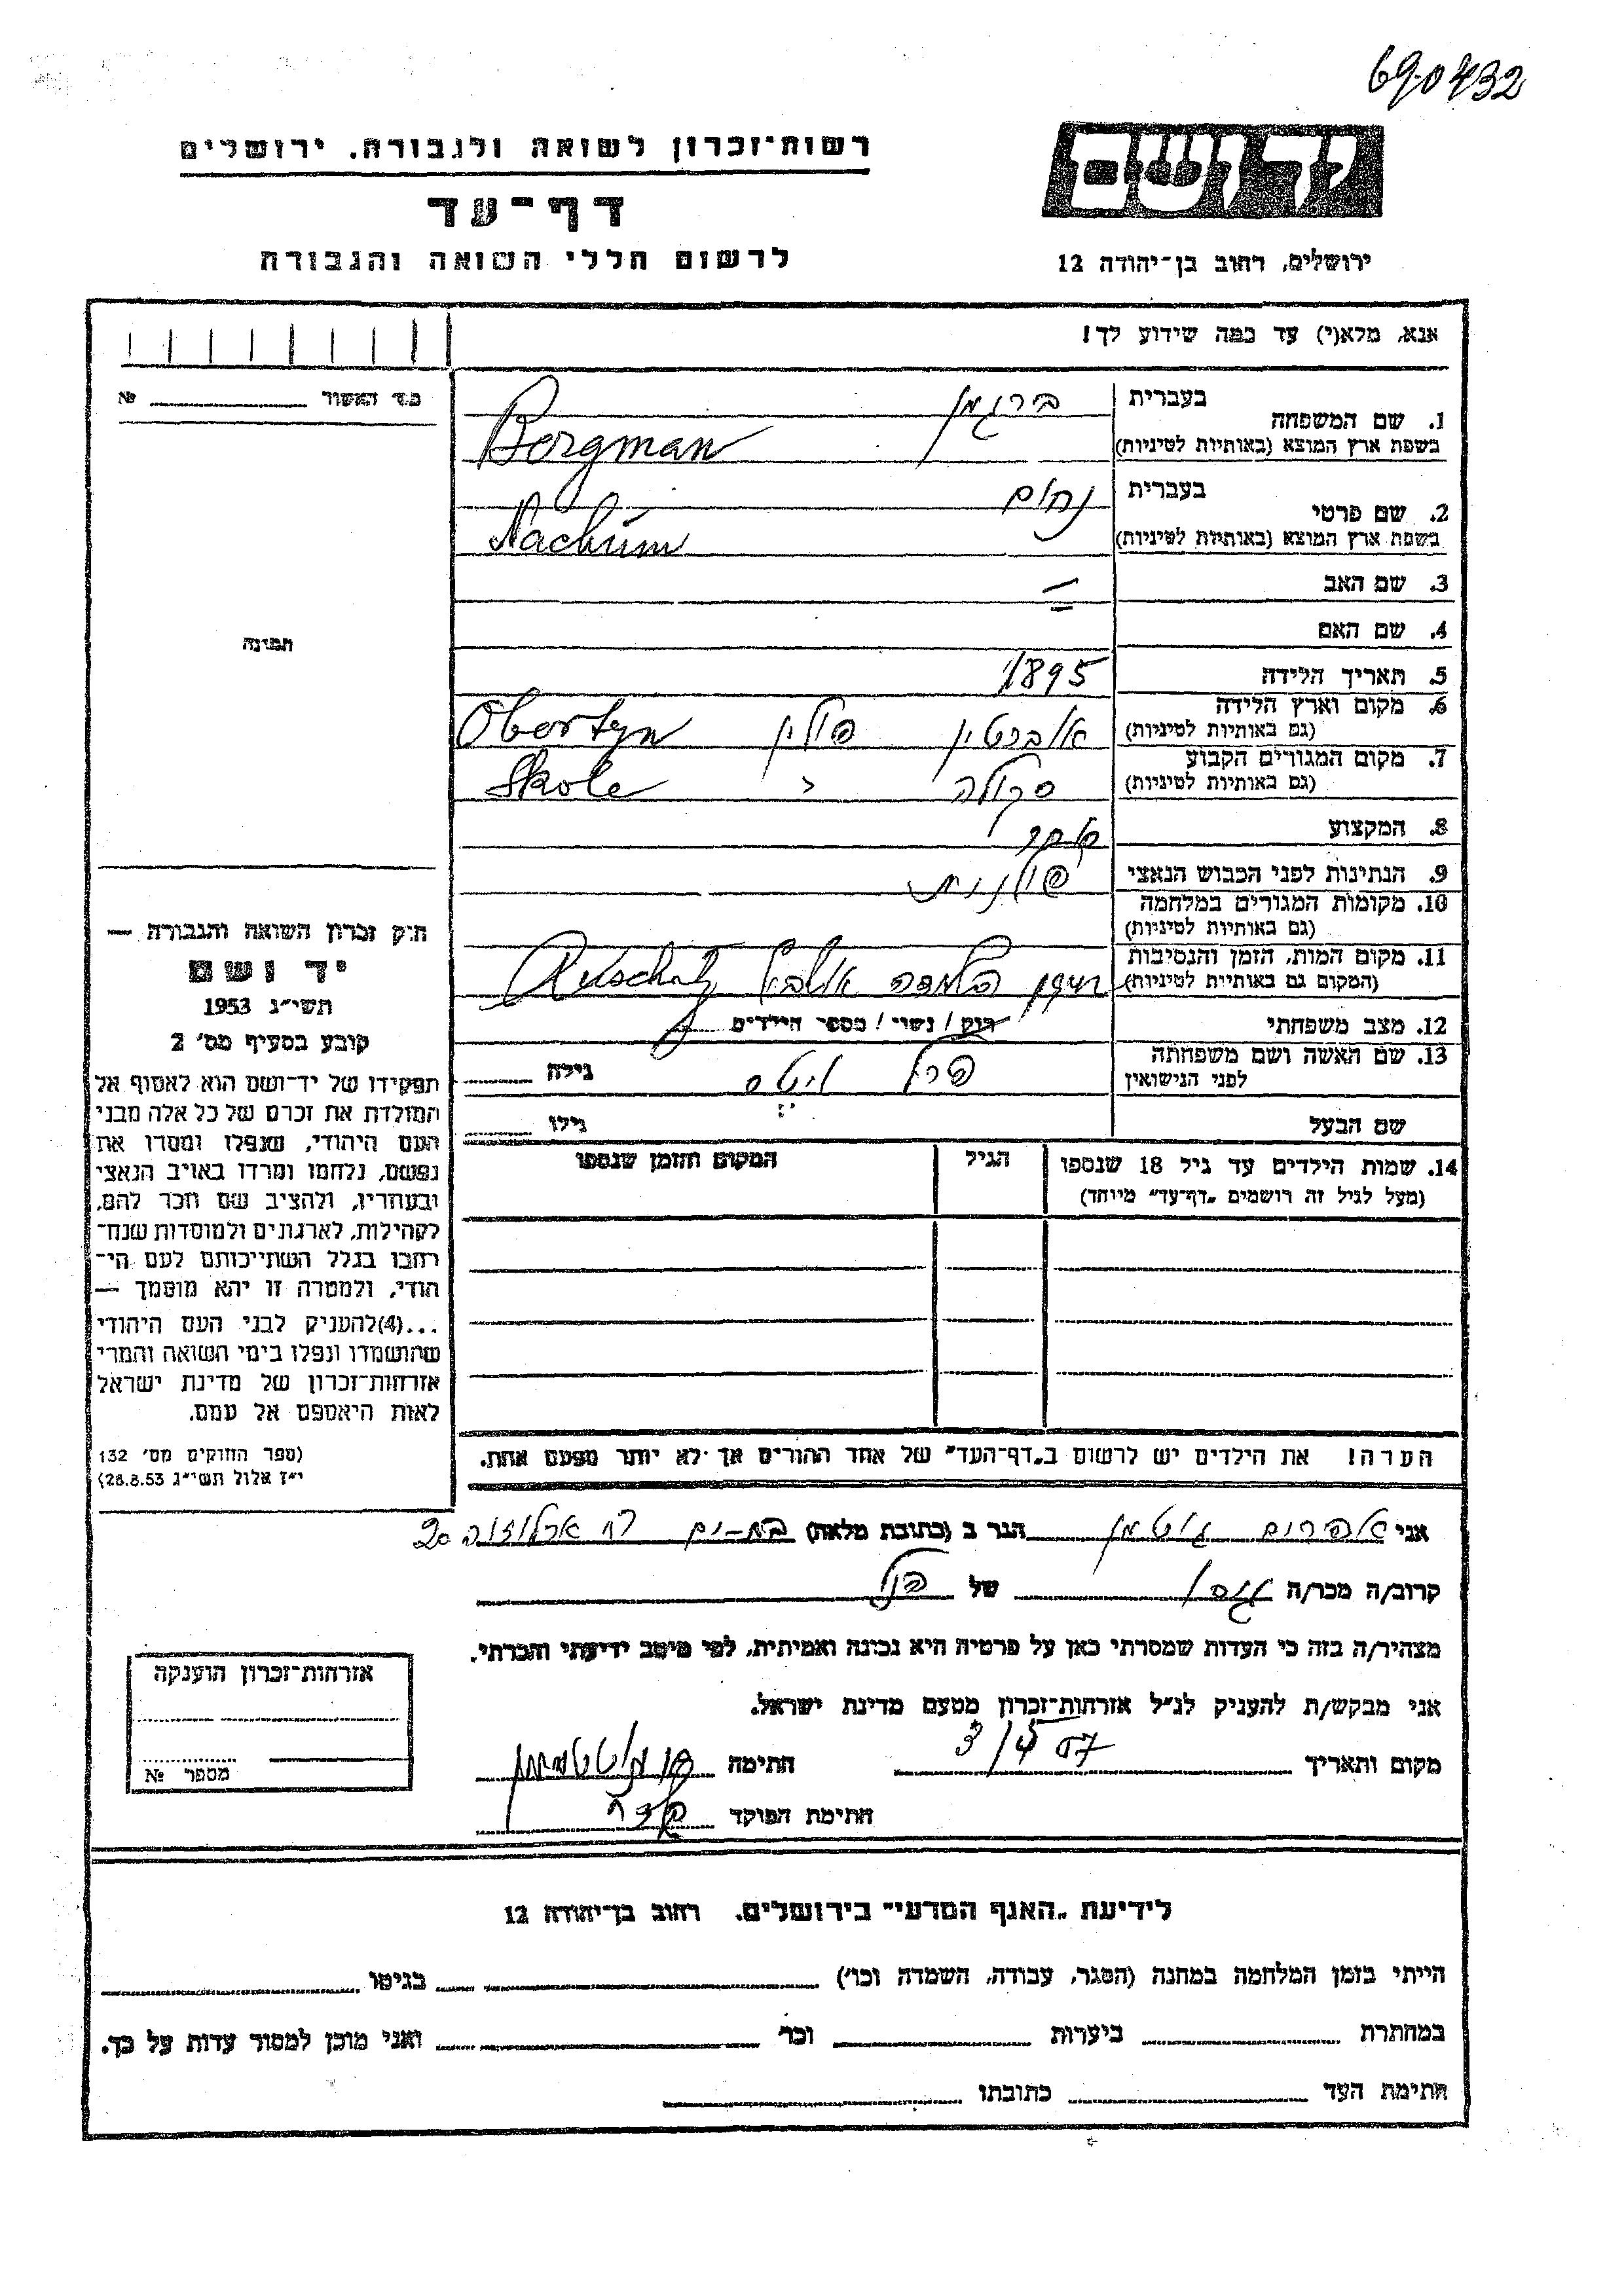 690432
רשות־זכרון לשואה ולגבורה, ירושלים
דף־עד
לרשום חללי השואה והגבורה
יד ושם
ירושלים, רחוב בן־יהודה 12
אנא, מלא(י) עד כמה שידוע לך!
מס׳ האשור №
תמונה
1. שם המשפחה בעברית ברגמן
בשפת ארץ המוצא (באותיות לטיניות) Bergman
2. שם פרטי בעברית נחום
בשפת ארץ המוצא (באותיות לטיניות) Nachum
3. שם האב —
4. שם האם
5. תאריך הלידה 1895
6. מקום וארץ הלידה אוברטין פולין Obertyn
(גם באותיות לטיניות)
7. מקום המגורים הקבוע סקולה " Skole
(גם באותיות לטיניות)
8. המקצוע סוחר
9. הנתינות לפני הכבוש הנאצי פולנית
10. מקומות המגורים במלחמה
(גם באותיות לטיניות)
11. מקום המות, הזמן והנסיבות
(המקום גם באותיות לטיניות)
12. מצב משפחתי רוק / נשוי / מספר הילדים
13. שם האשה ושם משפחתה פרל גילה
לפני הנישואין
שם הבעל גילו
14. שמות הילדים עד גיל 18 שנספו הגיל המקום והזמן שנספו
(מעל לגיל זה רושמים „דף־עד״ מיוחד)
הערה! את הילדים יש לרשום ב„דף־העד״ של אחד ההורים אך לא יותר מפעם אחת.
חוק זכרון השואה והגבורה —
יד ושם
תשי״ג 1953
קובע בסעיף מס׳ 2
תפקידו של יד־ושם הוא לאסוף אל
המולדת את זכרם של כל אלה מבני
העם היהודי, שנפלו ומסרו את
נפשם, נלחמו ומרדו באויב הנאצי
ובעוזריו, ולהציב שם וזכר להם,
לקהילות, לארגונים ולמוסדות שנח־
רבו בגלל השתייכותם לעם הי־
הודי, ולמטרה זו יהא מוסמך —
...(4)להעניק לבני העם היהודי
שהושמדו ונפלו בימי השואה והמרי
אזרחות־זכרון של מדינת ישראל
לאות היאספם אל עמם.
(ספר החוקים מס׳ 132
י״ז אלול תשי״ג 28.8.53)
אני אפרים גוטמן הגר ב (כתובת מלאה) בת-ים רח׳ 20
קרוב/ה מכר/ה גיסו של הנ״ל
מצהיר/ה בזה כי העדות שמסרתי כאן על פרטיה היא נכונה ואמיתית, לפי מיטב ידיעתי והכרתי.
אני מבקש/ת להעניק לנ״ל אזרחות־זכרון מטעם מדינת ישראל.
מקום ותאריך 3/5 57 חתימה
חתימת הפוקד
אזרחות־זכרון הוענקה
מספר №
לידיעת „האגף המדעי״ בירושלים, רחוב בן־יהודה 12
הייתי בזמן המלחמה במחנה (הסגר, עבודה, השמדה וכו׳) בגיטו
במחתרת ביערות וכו׳ ואני מוכן למסור עדות על כך.
חתימת העד כתובתו